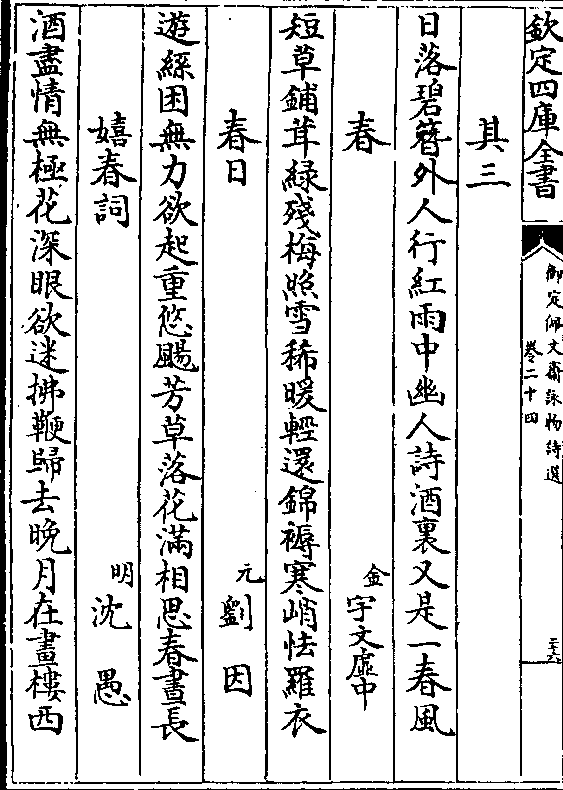 欽定四庫全書
御定佩文齋詠物詩選
卷二十四
二十六
其三
日落碧簪外人行紅雨中幽人詩酒裏又是一春風
春
金
宇文虛中
短草鋪茸綠殘梅照雪稀暖輕還錦褥寒峭怯羅衣
春日
元
劉因
遊絲困無力欲起重悠颺芳草落花滿相思春晝長
嬉春詞
明
沈愚
酒盡情無極花深眼欲迷拂鞭歸去晚月在畫樓西